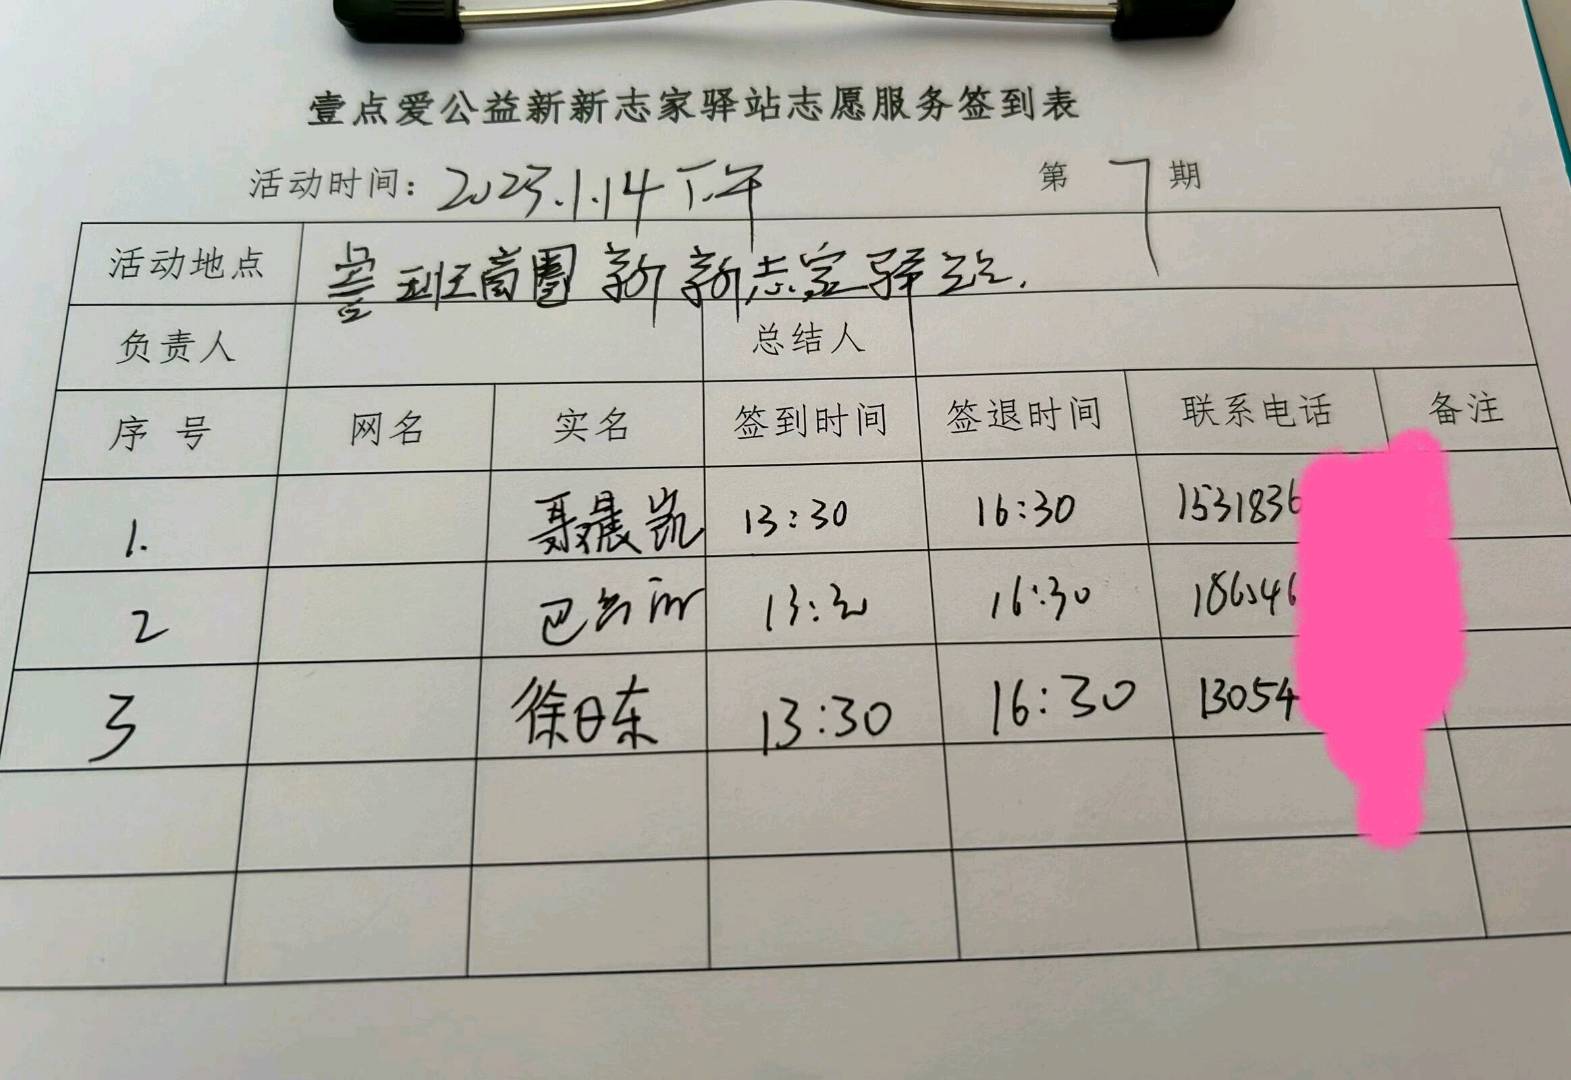 壹点爱公益新新志家驿站志愿服务签到表
活动时间：2023.1.14下午 第7期
活动地点 鲁班商圈新新志家驿站.
负责人 总结人
序号 网名 实名 签到时间 签退时间 联系电话 备注
1. 聂晨凯 13:30 16:30 1531836
2 巴 13:30 16:30 186546
3 徐日东 13:30 16:30 13054